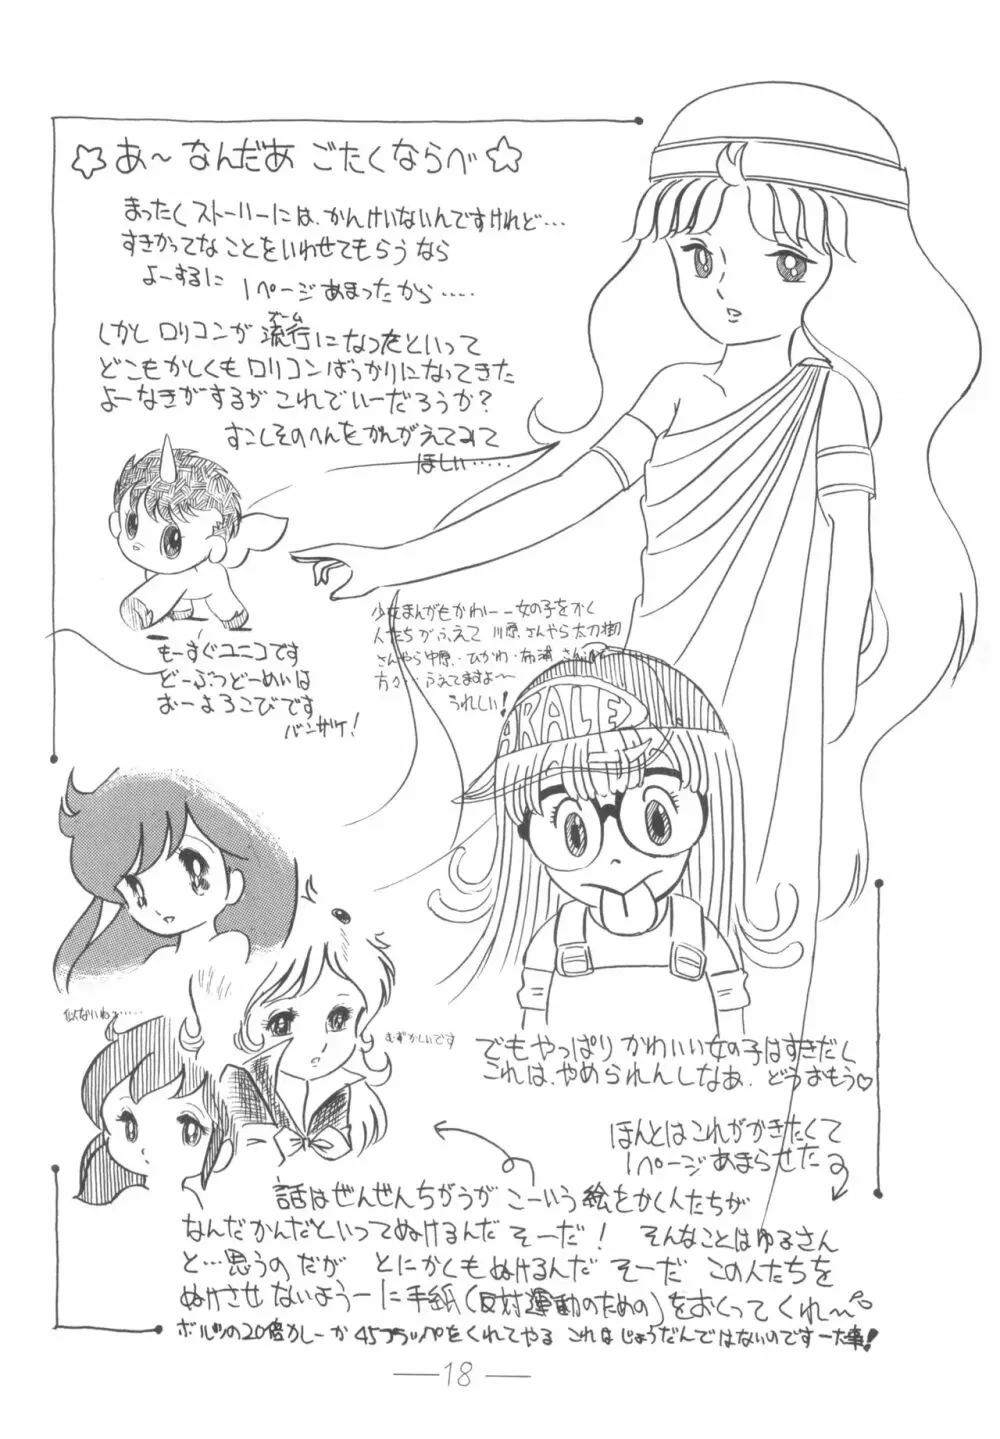 ☆ あ〜 なんだあ ごたくならべ ☆
まったくストーリーには、かんけいないんですけれど…
すきかってなことをいわせてもらうなら
よーするに 1ページあまったから…‥
しかし ロリコンが流行になったといって
ブーム
どこもかしくも ロリコンばっかりになってきた
よーなきがするが これでいーだろうか?
すこしそのへんをかんがえてみて
ほしい……
もーすぐユニコです
どーぶつどーめいは
おーよろこびです
バンザイ!
少女まんがもかわいー女の子をかく
人たちがふえて 川原さんやら太刀掛
さんやら中原・ひかわ・
方々…ふえてますよ〜
うれしい!
ARALE
似ないねぇ……
むずかしいです
でもやっぱり かわいい女の子はすきだし
これは、やめられんしなあ、どうおもう♡
ほんとはこれがかきたくて
1ページあまらせた
話はぜんぜんちがうが こーいう絵をかく人たちが
なんだかんだといってぬけるんだ そーだ! そんなことはゆるさん
と…思うの だが とにかくもぬけるんだ そーだ この人たちを
ぬけさせ ないよう一に手紙(反対運動のための)をおくってくれ〜
ボルツの20倍カレーか 45フラッペをくれてやる これはじょうだんではないのです 一大事!
— 18 —